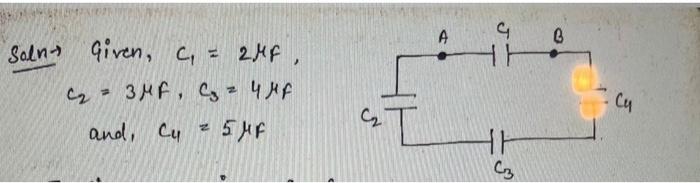 Soln→ Given, C₁ = 2μF,
C₂ = 3μF, C₃ = 4μF
and, C₄ = 5μF
A C₁ B
C₂
C₄
C₃